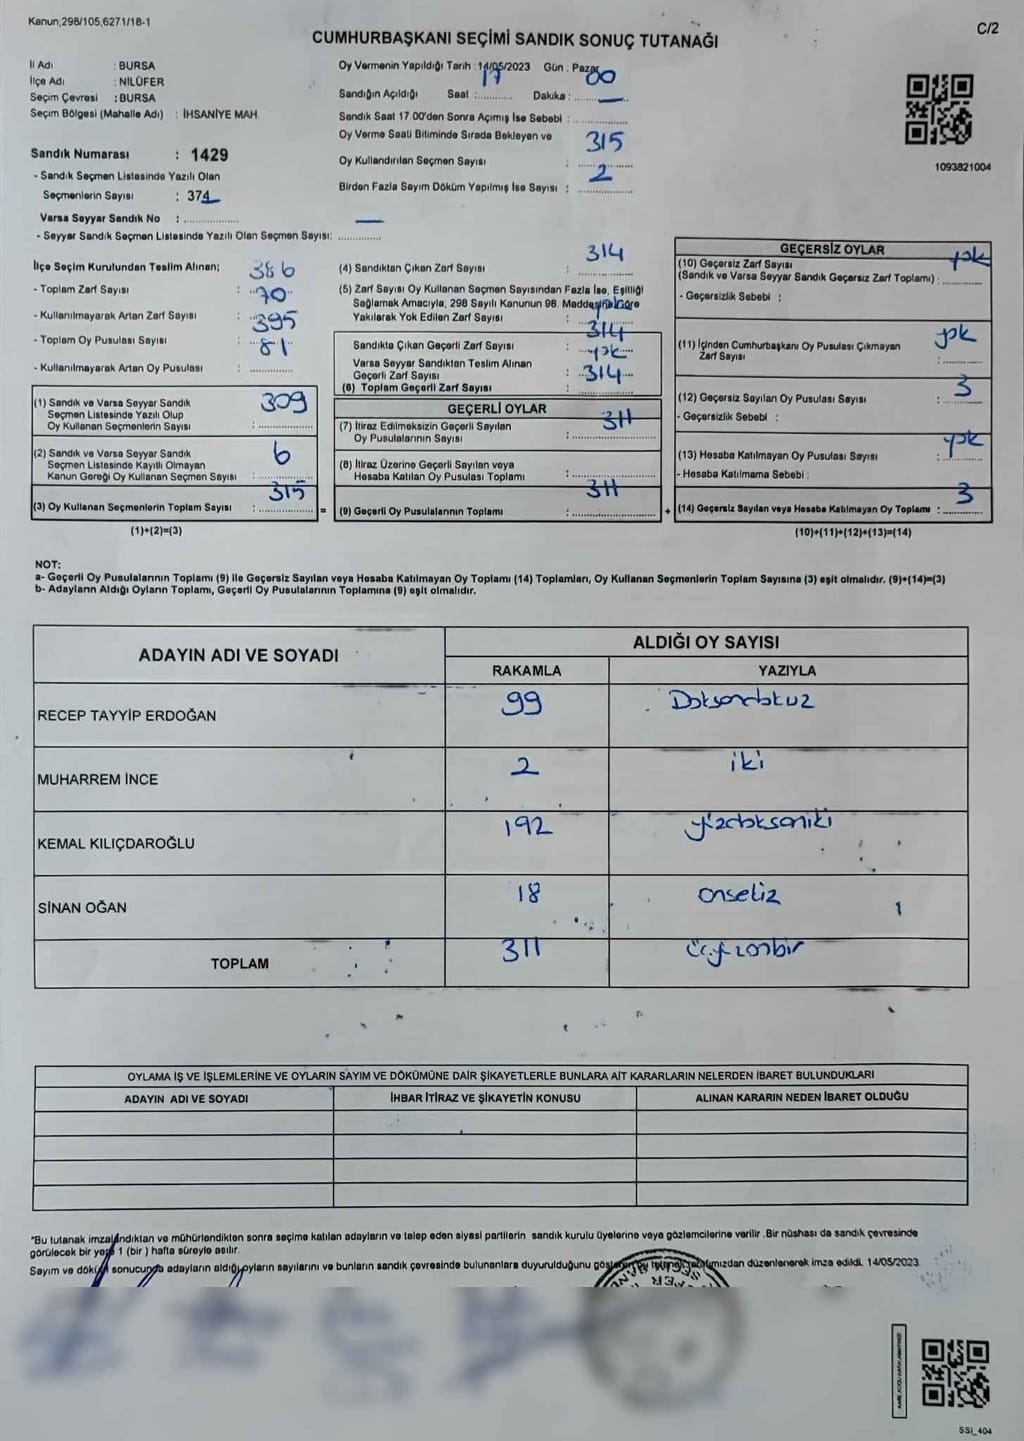 Kanun,298/105,6271/18-1
C/2
CUMHURBAŞKANI SEÇİMİ SANDIK SONUÇ TUTANAĞI
İl Adı : BURSA
İlçe Adı : NİLÜFER
Seçim Çevresi : BURSA
Seçim Bölgesi (Mahalle Adı) : İHSANİYE MAH.
Sandık Numarası : 1429
- Sandık Seçmen Listesinde Yazılı Olan
Seçmenlerin Sayısı : 374
Varsa Seyyar Sandık No :
- Seyyar Sandık Seçmen Listesinde Yazılı Olan Seçmen Sayısı: —
Oy Vermenin Yapıldığı Tarih : 14/05/2023 Gün : Pazar
Sandığın Açıldığı Saat : 17 Dakika : 00
Sandık Saat 17.00'den Sonra Açımış İse Sebebi : —
Oy Verme Saati Bitiminde Sırada Bekleyen ve
Oy Kullandırılan Seçmen Sayısı : 315
Birden Fazla Sayım Döküm Yapılmış İse Sayısı : 2
1093821004
İlçe Seçim Kurulundan Teslim Alınan;
- Toplam Zarf Sayısı : 386
- Kullanılmayarak Artan Zarf Sayısı : 70
- Toplam Oy Pusulası Sayısı : 395
- Kullanılmayarak Artan Oy Pusulası : 81
(1) Sandık ve Varsa Seyyar Sandık
Seçmen Listesinde Yazılı Olup
Oy Kullanan Seçmenlerin Sayısı : 309
(2) Sandık ve Varsa Seyyar Sandık
Seçmen Listesinde Kayıtlı Olmayan
Kanun Gereği Oy Kullanan Seçmen Sayısı : 6
(3) Oy Kullanan Seçmenlerin Toplam Sayısı : 315
(1)+(2)=(3)
=
(4) Sandıktan Çıkan Zarf Sayısı : 314
(5) Zarf Sayısı Oy Kullanan Seçmen Sayısından Fazla İse, Eşitliği
Sağlamak Amacıyla, 298 Sayılı Kanunun 98. Maddesine Göre
Yakılarak Yok Edilen Zarf Sayısı :
Sandıkta Çıkan Geçerli Zarf Sayısı : 314
Varsa Seyyar Sandıktan Teslim Alınan
Geçerli Zarf Sayısı : yok
(6) Toplam Geçerli Zarf Sayısı : 314
GEÇERLİ OYLAR
(7) İtiraz Edilmeksizin Geçerli Sayılan
Oy Pusulalarının Sayısı : 311
(8) İtiraz Üzerine Geçerli Sayılan veya
Hesaba Katılan Oy Pusulası Toplamı :
(9) Geçerli Oy Pusulalarının Toplamı : 311
+
GEÇERSİZ OYLAR
(10) Geçersiz Zarf Sayısı
(Sandık ve Varsa Seyyar Sandık Geçersiz Zarf Toplamı) : yok
- Geçersizlik Sebebi :
(11) İçinden Cumhurbaşkanı Oy Pusulası Çıkmayan
Zarf Sayısı : yok
(12) Geçersiz Sayılan Oy Pusulası Sayısı : 3
- Geçersizlik Sebebi :
(13) Hesaba Katılmayan Oy Pusulası Sayısı : yok
- Hesaba Katılmama Sebebi :
(14) Geçersiz Sayılan veya Hesaba Katılmayan Oy Toplamı : 3
(10)+(11)+(12)+(13)=(14)
NOT:
a- Geçerli Oy Pusulalarının Toplamı (9) ile Geçersiz Sayılan veya Hesaba Katılmayan Oy Toplamı (14) Toplamları, Oy Kullanan Seçmenlerin Toplam Sayısına (3) eşit olmalıdır. (9)+(14)=(3)
b- Adayların Aldığı Oyların Toplamı, Geçerli Oy Pusulalarının Toplamına (9) eşit olmalıdır.
ADAYIN ADI VE SOYADI ALDIĞI OY SAYISI
RAKAMLA YAZIYLA
RECEP TAYYİP ERDOĞAN 99 Doksandokuz
MUHARREM İNCE 2 iki
KEMAL KILIÇDAROĞLU 192 yüzdoksaniki
SİNAN OĞAN 18 onsekiz 1
TOPLAM 311 üçyüzonbir
OYLAMA İŞ VE İŞLEMLERİNE VE OYLARIN SAYIM VE DÖKÜMÜNE DAİR ŞİKAYETLERLE BUNLARA AİT KARARLARIN NELERDEN İBARET BULUNDUKLARI
ADAYIN ADI VE SOYADI İHBAR İTİRAZ VE ŞİKAYETİN KONUSU ALINAN KARARIN NEDEN İBARET OLDUĞU
"Bu tutanak imzalandıktan ve mühürlendikten sonra seçime katılan adayların ve talep eden siyasi partilerin sandık kurulu üyelerine veya gözlemcilerine verilir .Bir nüshası da sandık çevresinde
görülecek bir yere 1 (bir ) hafta süreyle asılır.
Sayım ve döküm sonucunda adayların aldığı oyların sayılarını ve bunların sandık çevresinde bulunanlara duyurulduğunu gösteren bu tutanak tarafımızdan düzenlenerek imza edildi. 14/05/2023
SSI_404